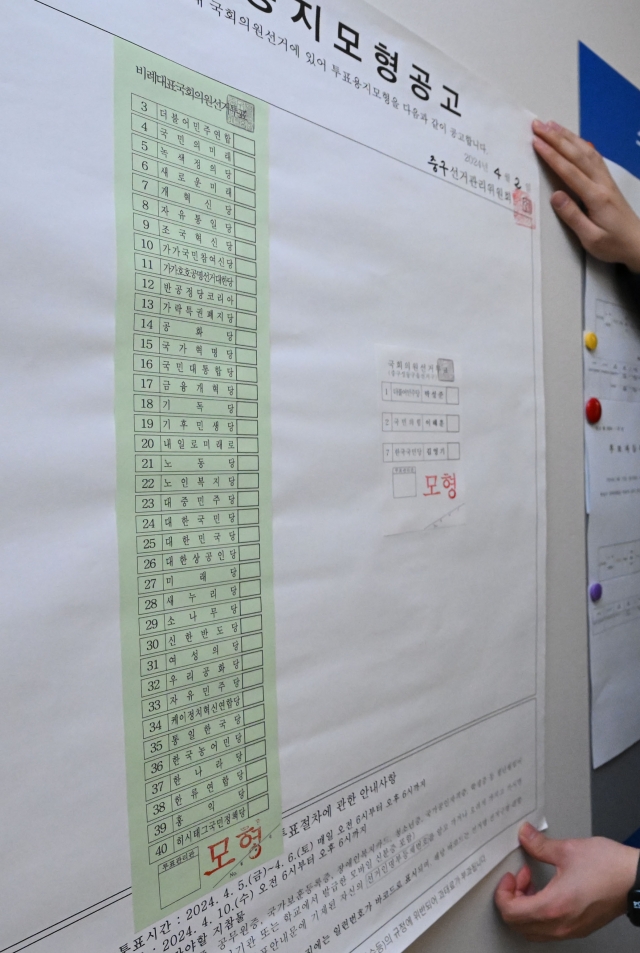 용지모형공고
국회의원선거에 있어 투표용지모형을 다음과 같이 공고합니다.
2024년 4월 2일
중구선거관리위원회
비례대표국회의원선거투표
3 더불어민주연합
4 국민의미래
5 녹색정의당
6 새로운미래
7 개혁신당
8 자유통일당
9 조국혁신당
10 가가국민참여신당
11 가가호호공명선거대한당
12 반공정당코리아
13 가락특권폐지당
14 공화당
15 국가혁명당
16 국민대통합당
17 금융개혁당
18 기독당
19 기후민생당
20 내일로미래로
21 노동당
22 노인복지당
23 대중민주당
24 대한국민당
25 대한민국당
26 대한상공인당
27 미래당
28 새누리당
29 소나무당
30 신한반도당
31 여성의당
32 우리공화당
33 자유민주당
34 케이정치혁신연합당
35 통일한국당
36 한국농어민당
37 한나라당
38 한류연합당
39 홍익당
40 히시태그국민정책당
투표관리관
모형
국회의원선거투
1 더불어민주당 박성준
2 국민의힘 이혜훈
7 한국국민당 김영기
투표관리관
모형
투표절차에 관한 안내사항
투표시간 : 2024. 4. 5.(금)~4. 6.(토) 매일 오전 6시부터 오후 6시까지
2024. 4. 10.(수) 오전 6시부터 오후 6시까지